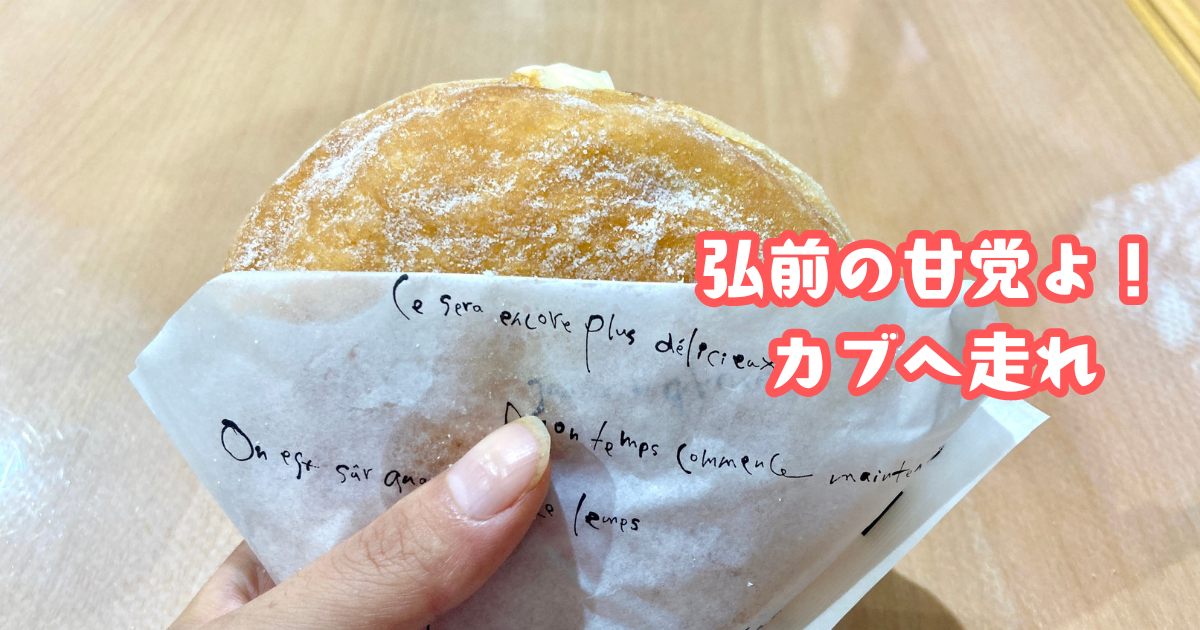 弘前の甘党よ！
カブへ走れ
Ce sera encore plus délicieux
mon temps commence
On est sûr que
le temps